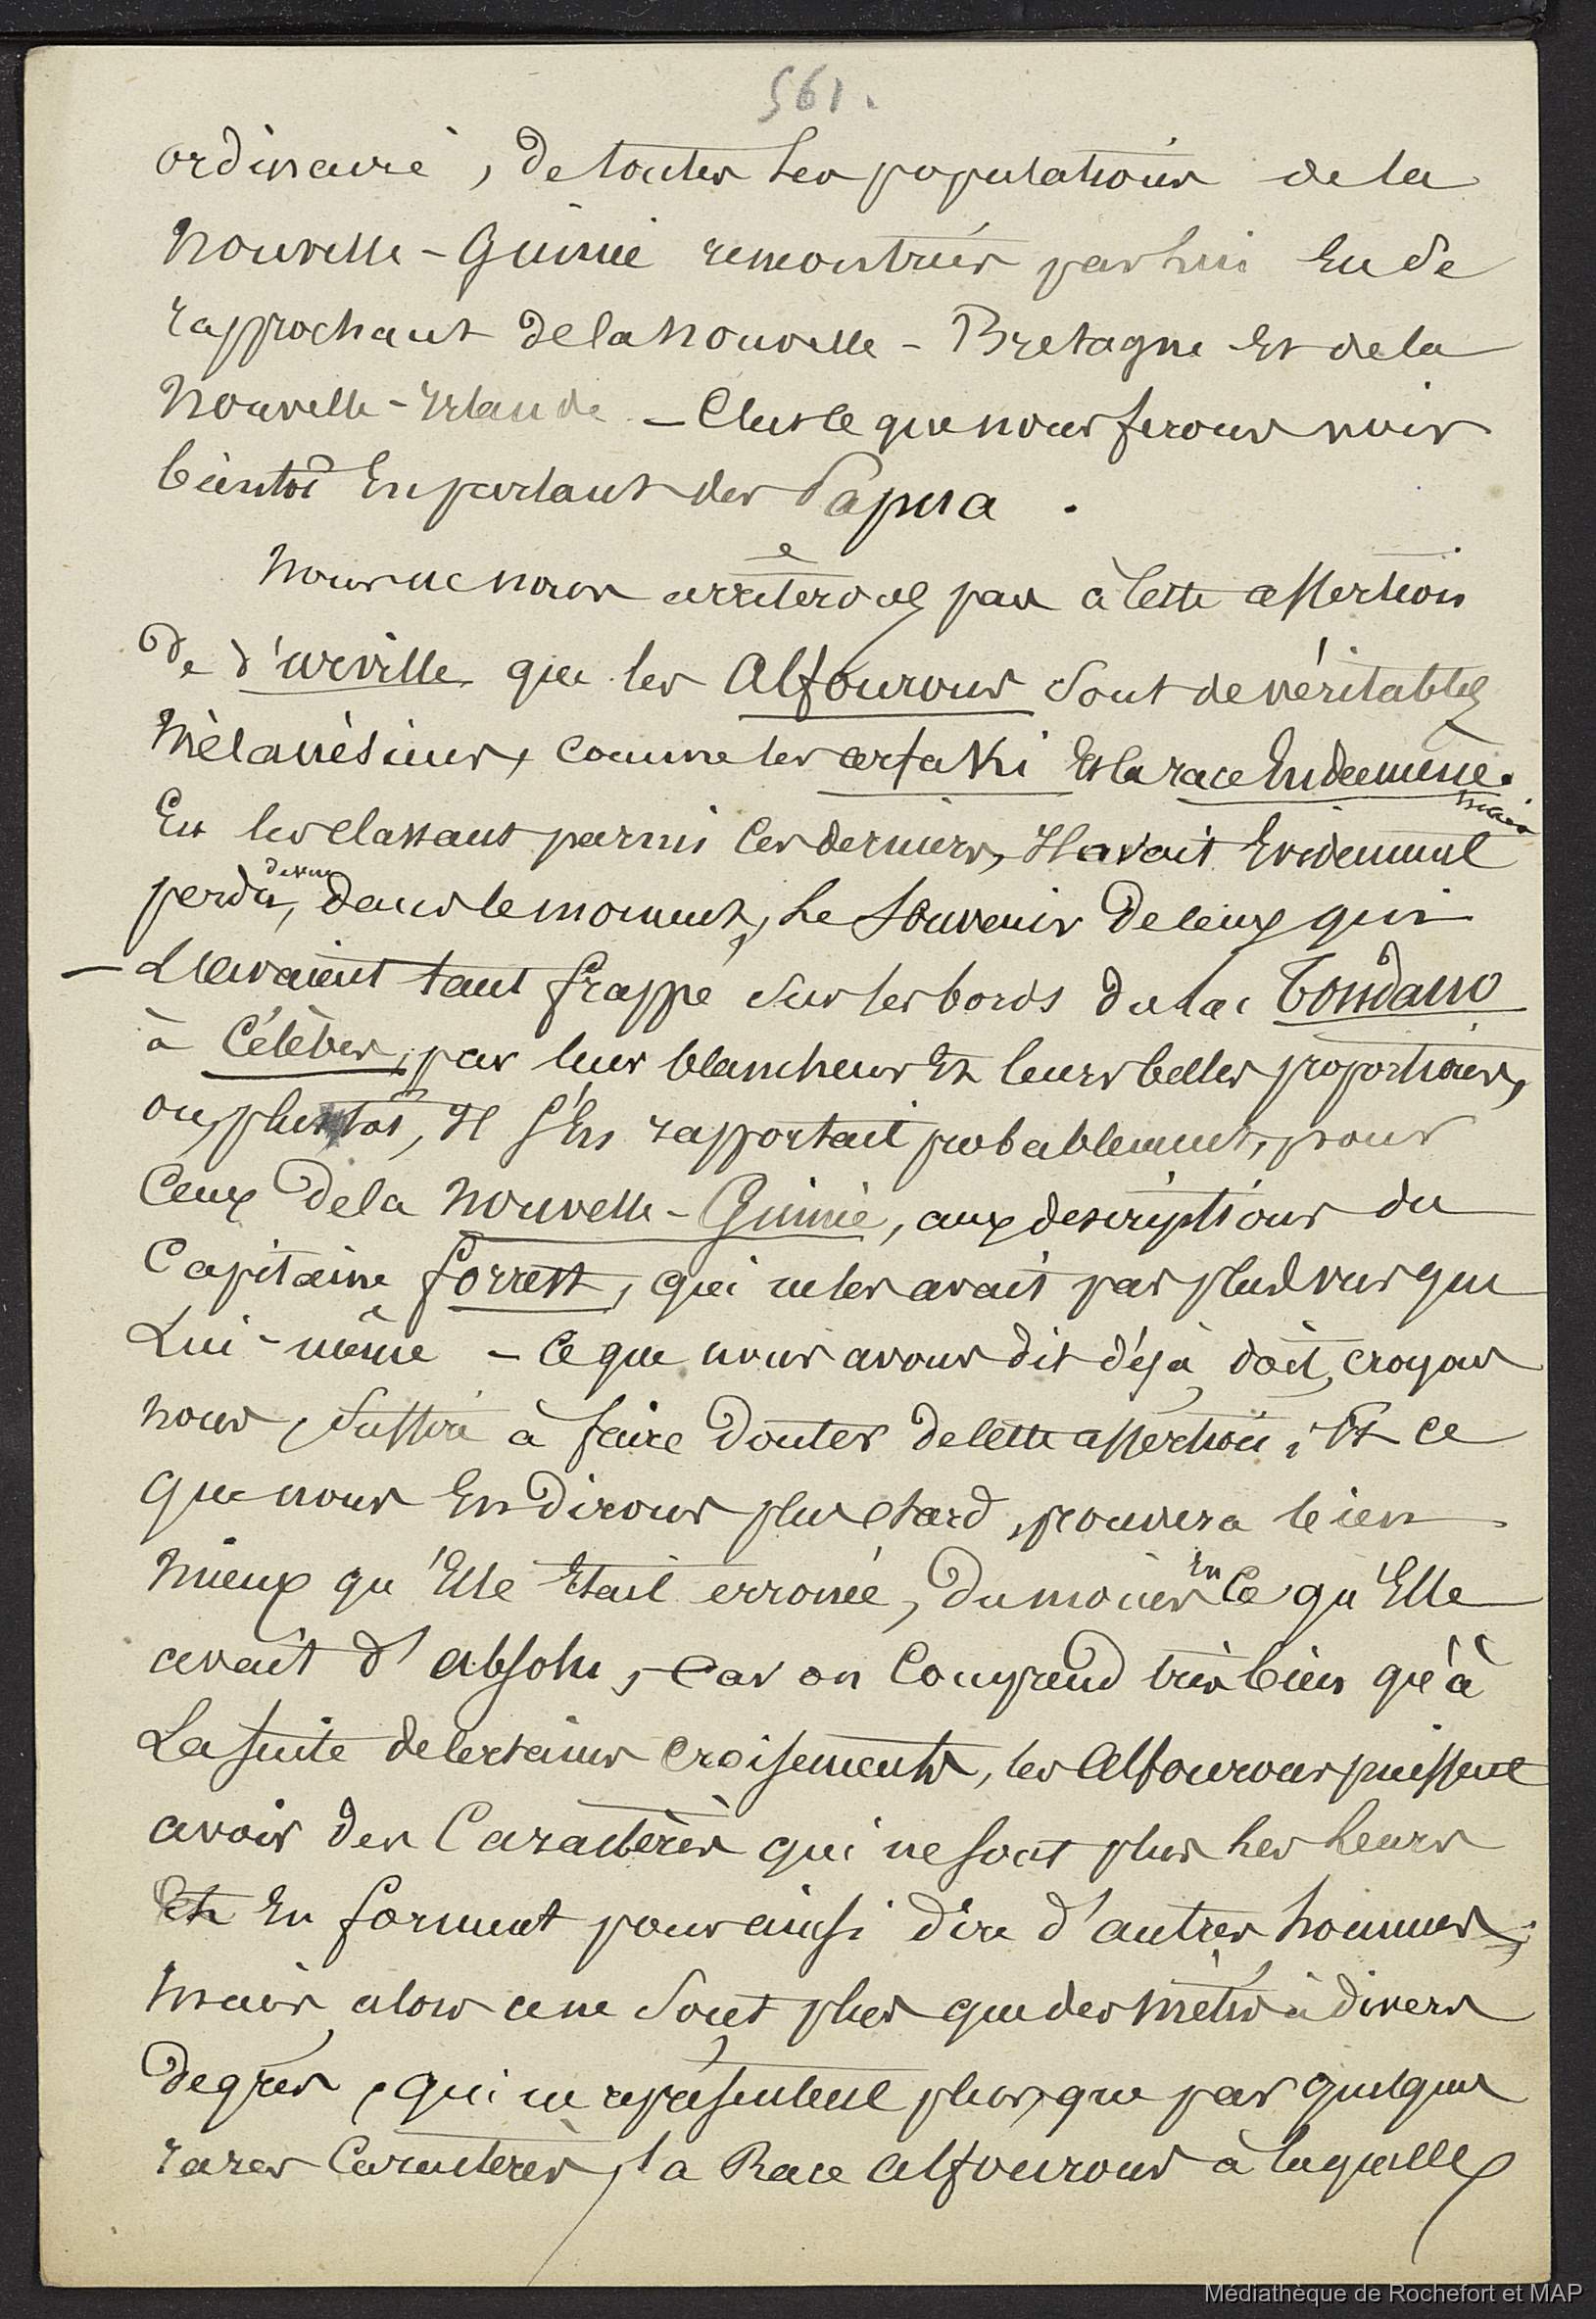 561.
ordinaire, de toutes les populations de la
Nouvelle-Guinée rencontrées par lui en se
rapprochant de la Nouvelle-Bretagne et de la
Nouvelle-Irlande — C'est ce que nous ferons voir
bientôt en parlant des Papua.
Nous ne nous arrêterons pas à cette assertion
de d'Urville que les Alfourous sont de véritables
Mélanésiens, comme les arfaki et la race Endamène.
En les classant parmi ces derniers, il avait évidemment
perdu, dans le moment, le souvenir de ceux qui
l'avaient tant frappé sur les bords du lac Tondano
à Célèbes, par leur blancheur et leurs belles proportions,
ou, plutôt, il s'en rapportait probablement, pour
ceux de la Nouvelle-Guinée, aux descriptions du
Capitaine Forrest, qui ne les avait pas plus vus que
lui-même — Ce que nous avons dit déjà, doit, croyons
nous, suffire à faire douter de cette assertion, et ce
que nous en dirons plus tard, prouvera bien
mieux qu'elle était erronée, du moins en ce qu'elle
avait d'absolu, car on comprend très bien qu'à
la suite de certains croisements, les Alfourous puissent
avoir des caractères qui ne sont plus les leurs
et en forment pour ainsi dire d'autres hommes;
mais, alors ce ne sont plus que des métis à divers
degrés, qui ne représentent plus, que par quelques
rares caractères, la Race alfourous à laquelle
Médiathèque de Rochefort et MAP